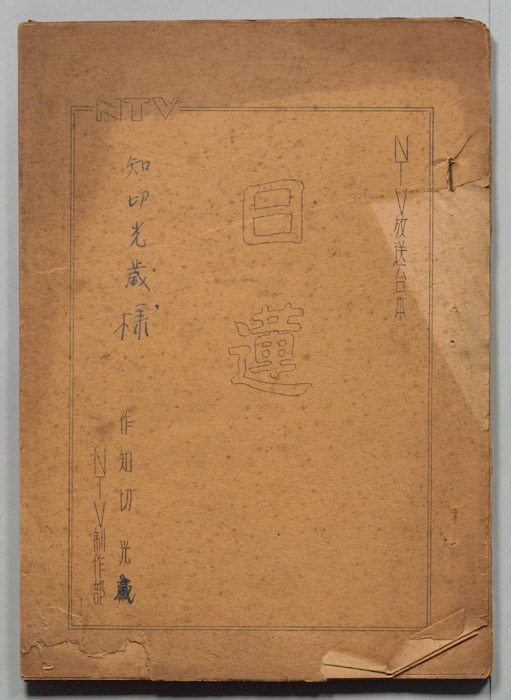 NTV
NTV放送台本
日蓮
知切光歳様
作 知切光歳
NTV制作部